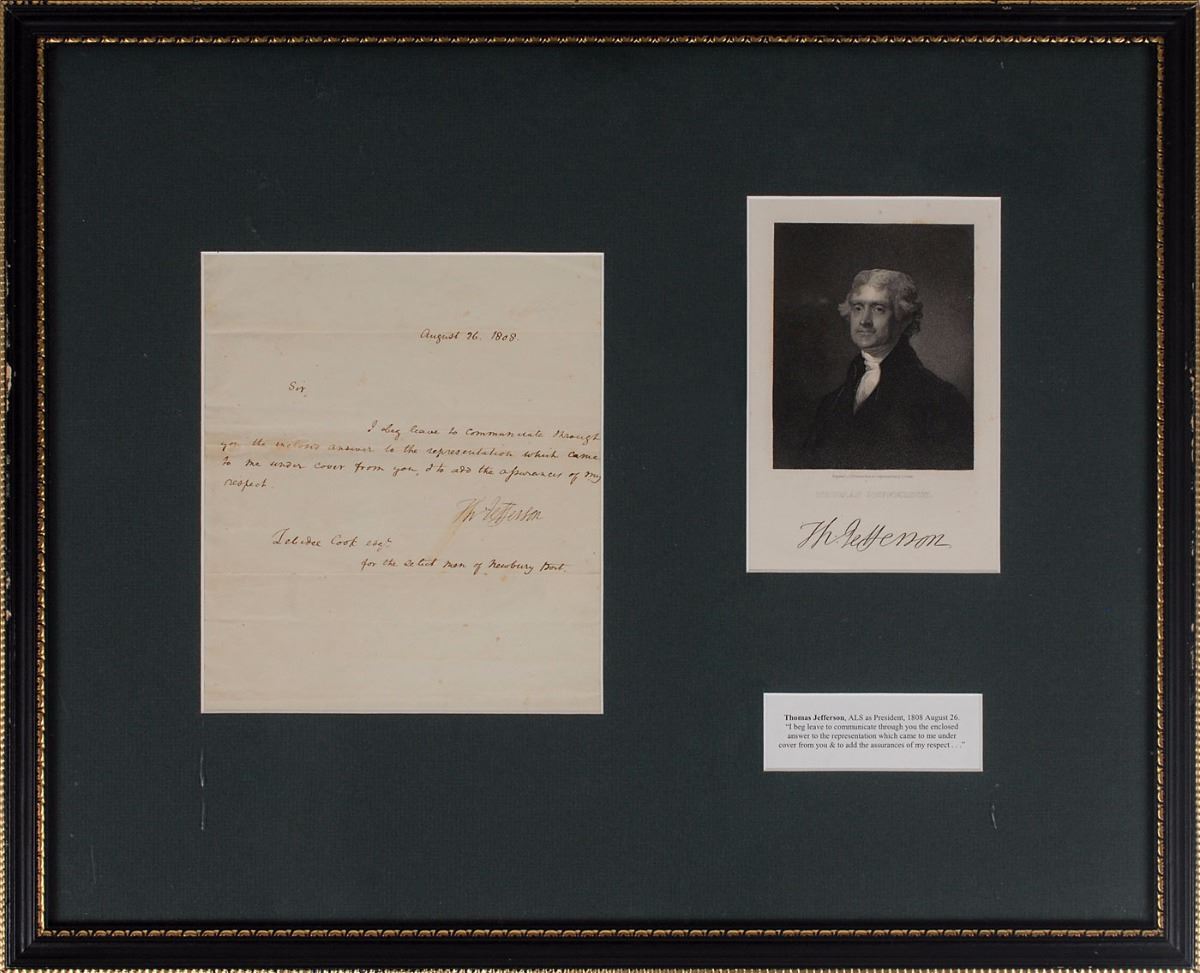 August 26. 1808.
Sir,
I beg leave to communicate through
you the inclosed answer to the representation which came
to me under cover from you, & to add the assurances of my
respect.
Th: Jefferson
Cook esqr.
for the select men of Newbury Port.
THOMAS JEFFERSON.
Th. Jefferson
Thomas Jefferson, ALS as President, 1808 August 26.
"I beg leave to communicate through you the enclosed
answer to the representation which came to me under
cover from you & to add the assurances of my respect . . ."